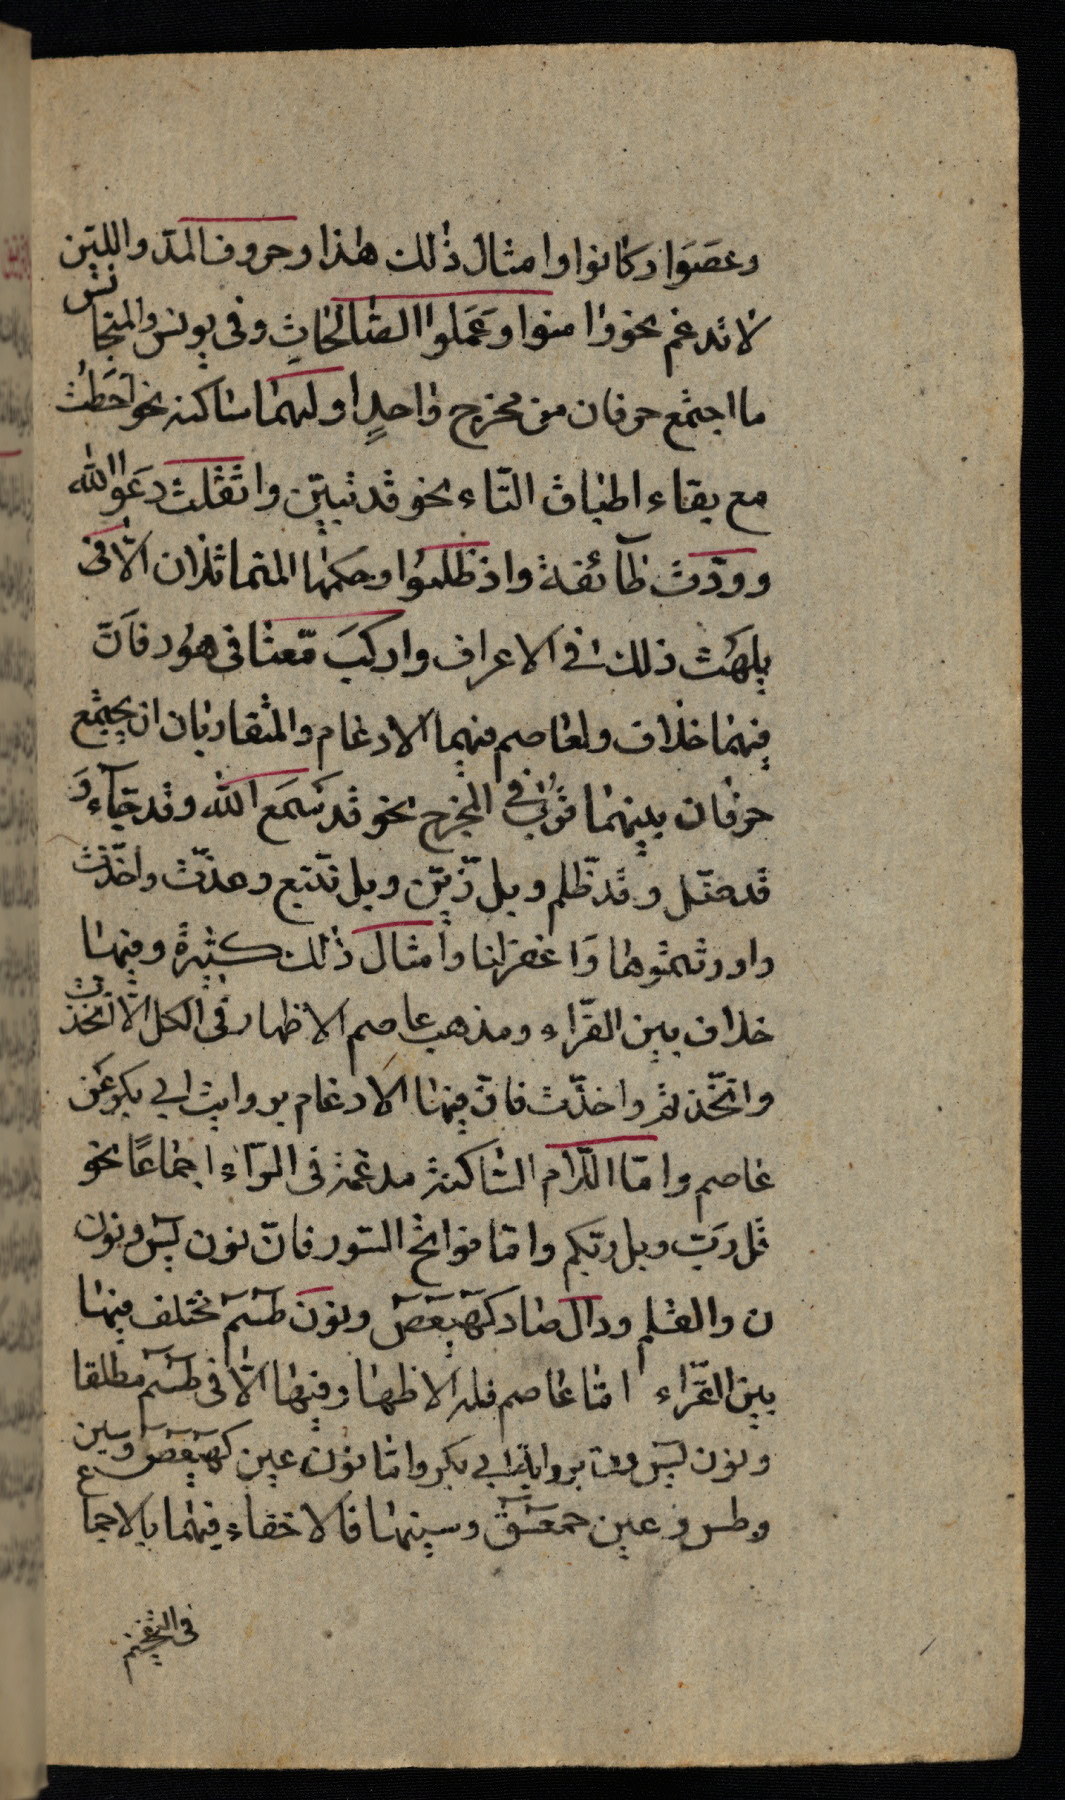 وعصَوا وكانوا وامثال ذٰلك هٰذا وحروف المدّ واللين
لا تدغم نحو واٰمنوا وعَمَلوا الصّالحاتِ وفى يونس والمتجانس
ما اجتمع حرفان من مخرج واحدٍ اولهما ساكنه نحو احَطتُ
مع بقاء اطباق التّاء نحو قد تبيّن واثقلت دعَوا اللّٰه
وودّت طآئفة واذ ظلموا وحكمها المتماثلان الّا فى
يلهَث ذلك فى الاعراف واركبَ مّعنا فى هود فانّ
فيهما خلاف ولعاصم فيهما الادغام والمتقاربان ان يجتمع
حرفان بينهما قربٌ فى المخرج نحو قد سَمَع اللّٰه وقد جّآء وَ
قد ضّل وقد ظّلم وبل زّيّن وبل نّتبع وعذّت واخّذت
واورثتموها وَاغفر لنا وامثال ذٰلك كثيرة وفيها
خلاف بين القرّاء ومذهب عاصم الاظهار فى الكل الّا اتّخذت
واتّخذتم واخذّت فانّ فيها الادغام بروايت ابي بكر عَن
عاصم وامّا اللّام السّاكنة مدغمة فى الرّاء اجماعًا نحو
قل ربّ وبل ربّكم وامّا فواتح السّور فانّ نون يٰسٓ ونون
ن والقلم ودال صاد كٓهٰيٰعٓصٓ ونون طٰسٓمٓ تختلف فيها
بين القرّاء امّا عاصم فله الاظهار فيها الّا فى طٰسٓمٓ مطلقا
ونون يٰسٓ ون بروايت ابي بكر وامّا نون عين كهيعصٓ وسين
وطس وعين حمعٓسٓقٓ وسينها فالاخفاء فيهما بالاجماع
فى التفخيم